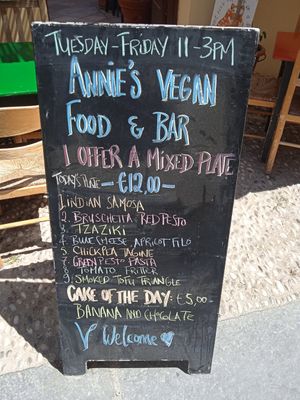 TUESDAY-FRIDAY 11-3PM
ANNIE'S VEGAN
FOOD & BAR
I OFFER A MIXED PLATE
TODAY'S PLATE -€12,00-
1. INDIAN SAMOSA
2. BRUSCHETTA RED PESTO
3. TZAZIKI
4. BLUE CHEESE APRICOT FILO
5. CHICKPEA TAGINE
7. GREEN PESTO PASTA
8. TOMATO FRITTER
9. SMOKED TOFU TRIANGLE
CAKE OF THE DAY: €5,00
BANANA AND CHOCLATE
Welcome